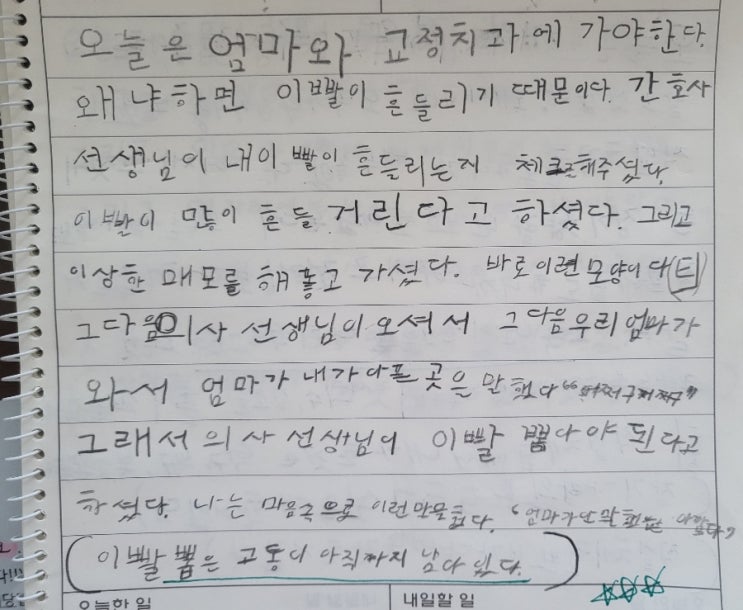 오늘은 엄마와 교정치과에 가야한다.
왜냐하면 이빨이 흔들리기 때문이다. 간호사
선생님이 내이빨이 흔들리는지 체크해주셨다.
이빨이 많이 흔들 거린다고 하셨다. 그리고
이상한 매모를 해 홓고 가셨다. 바로이런모양이다
그다음 의사 선생님이오셔서 그다음우리엄마가
와서 엄마가 내가아픈곳은 말했다
그래서의사선생님이 이빨 뽑아야 된다고
하셨다. 나는 마음속으로 이런말을했다. "엄마가
(이빨 뽑은 고통이 아직까지 남아 있다.)
오늘한 일 내일할 일